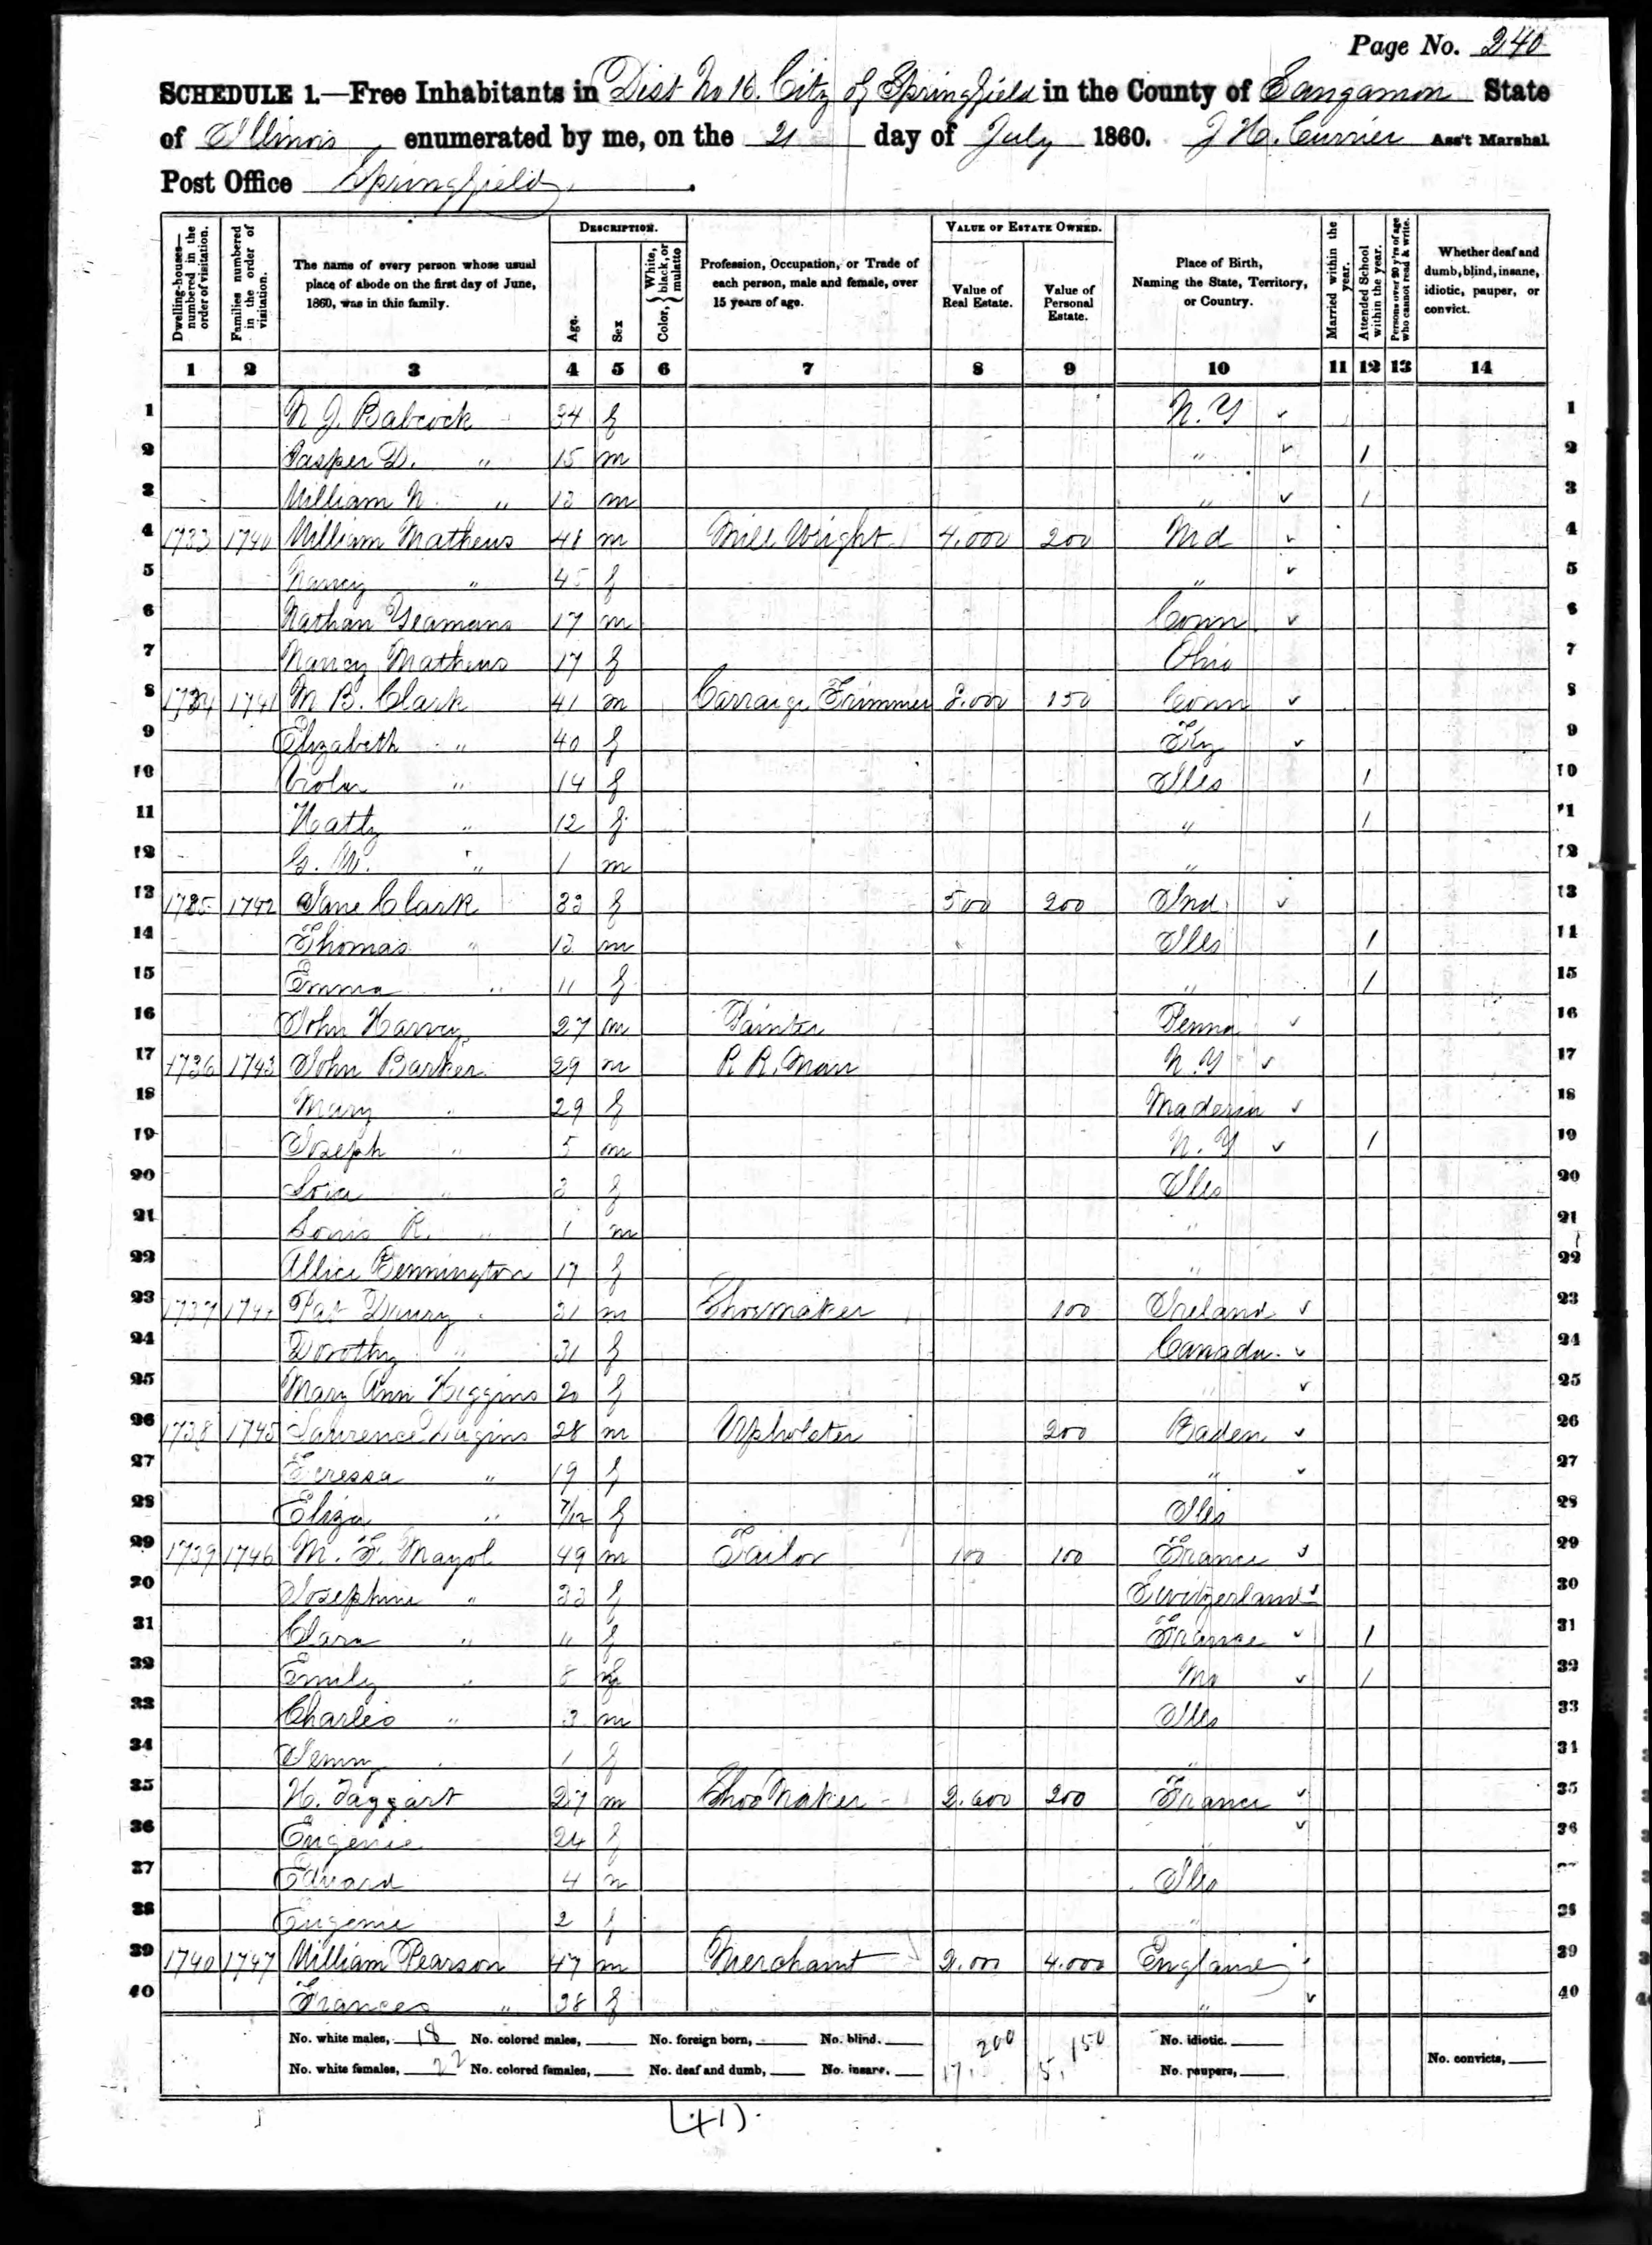 Page No. 240
SCHEDULE 1.—Free Inhabitants in Dist No 16. City of Springfield in the County of Sangamon State
of Illinois, enumerated by me, on the 21 day of July 1860. J H. Currier Ass't Marshal
Post Office Springfield.
Dwelling-houses—numbered in the order of visitation. Families numbered in the order of visitation. The name of every person whose usual place of abode on the first day of June, 1860, was in this family. DESCRIPTION. Age. Sex Color, } White, black, or mulatto Profession, Occupation, or Trade of each person, male and female, over 15 years of age. VALUE OF ESTATE OWNED. Value of Real Estate. Value of Personal Estate. Place of Birth, Naming the State, Territory, or Country. Married within the year. Attended School within the year. Persons over 20 y'rs of age who cannot read & write. Whether deaf and dumb, blind, insane, idiotic, pauper, or convict.
1 2 3 4 5 6 7 8 9 10 11 12 13 14
1 N J. Babcock 34 f N. Y ✓ 1
2 Jasper D. " 15 m " ✓ / 2
3 William N. " 13 m " ✓ / 3
4 1733 1740 William Mathews 48 m Mill Wright 4.000 200 Md ✓ 4
5 Nancy " 45 f " ✓ 5
6 Nathan Yeamans 17 m Conn ✓ 6
7 Nancy Mathews 17 f Ohio 7
8 1734 1741 M B. Clark 41 m Carraige Trimmer 150 Conn ✓ 8
9 Elizabeth " 40 f Ky ✓ 9
10 " 14 f Ills / 10
11 Hatty " 12 f " / 11
12 " 1 m " 12
13 1735 1742 Jane Clark 33 f 500 200 Ind ✓ 13
14 Thomas " 13 m Ills / 14
15 Emma " 11 f " / 15
16 John Harvey 27 m Painter Penna ✓ 16
17 1736 1743 John Barker 29 m R R. Man N. Y ✓ 17
18 Mary " 29 f Maderia ✓ 18
19 Joseph " 5 m N. Y ✓ / 19
20 " 3 f Ills 20
21 R. " 1 m " 21
22 Allice Bennington 17 f " 22
23 1737 Pat 31 m Shoemaker 100 Ireland ✓ 23
24 Dorothy " 31 f Canada ✓ 24
25 Mary Ann Higgins 20 f " ✓ 25
26 1738 1745 Lawrence 28 m Upholster 200 Baden ✓ 26
27 Teressa " 19 f " ✓ 27
28 Eliza " 7/12 f Ills 28
29 1739 1746 M. F. Mayol 49 m Tailor 100 100 France ✓ 29
30 Josephine " 33 f Switzerland ✓ 30
31 Clara " 11 f France ✓ / 31
32 Emily " 8 f Mo ✓ / 32
33 Charles " 3 m Ills 33
34 1 f " 34
35 H. Taggart 27 m Shoe Maker 2.600 200 France ✓ 35
36 Eugenie 24 f " ✓ 36
37 Edward 4 m Ills 37
38 Eugenie 2 f " 38
39 1740 1747 William Pearson 47 m Merchant 2.000 4.000 England ✓ 39
40 Frances " 38 f " ✓ 40
No. white males, 18 No. colored males, No. foreign born, No. blind. 200 150 No. idiotic.
No. white females, 22 No. colored females, No. deaf and dumb, No. insane, 17. 5. No. paupers, No. convicts,